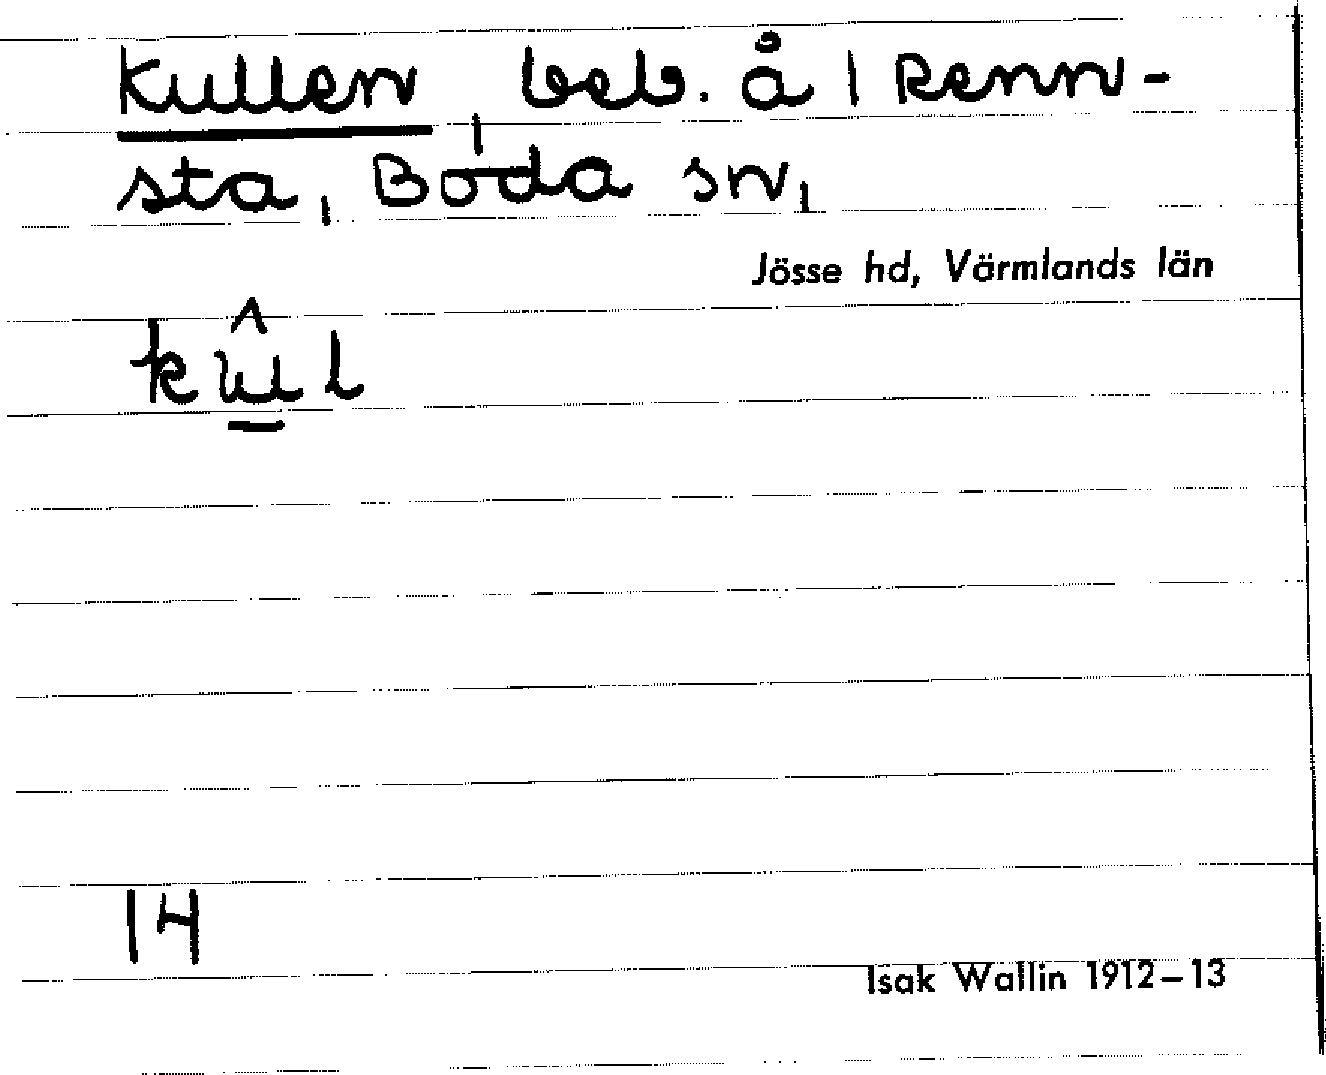 Kullen, beb. å 1 Renn-
sta, Boda sn,
Jösse hd, Värmlands län
14
Isak Wallin 1912–13